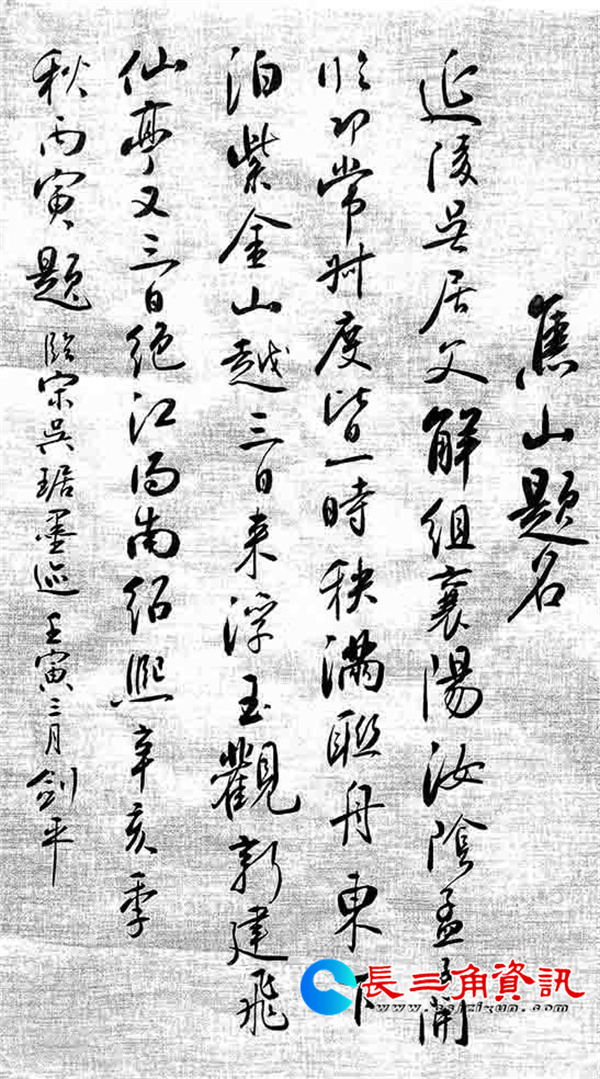 焦山題名
延陵吳居父解組襄陽汝陰孟開
臨邛常叔度皆一時秩滿聯舟東下
泊紫金山越三日來浮玉觀新建飛
仙亭又三日絕江而南紹熙辛亥季
秋丙寅題 臨宋吳琚墨迹 壬寅三月劍平
長三角資訊
www.csjzixun.com